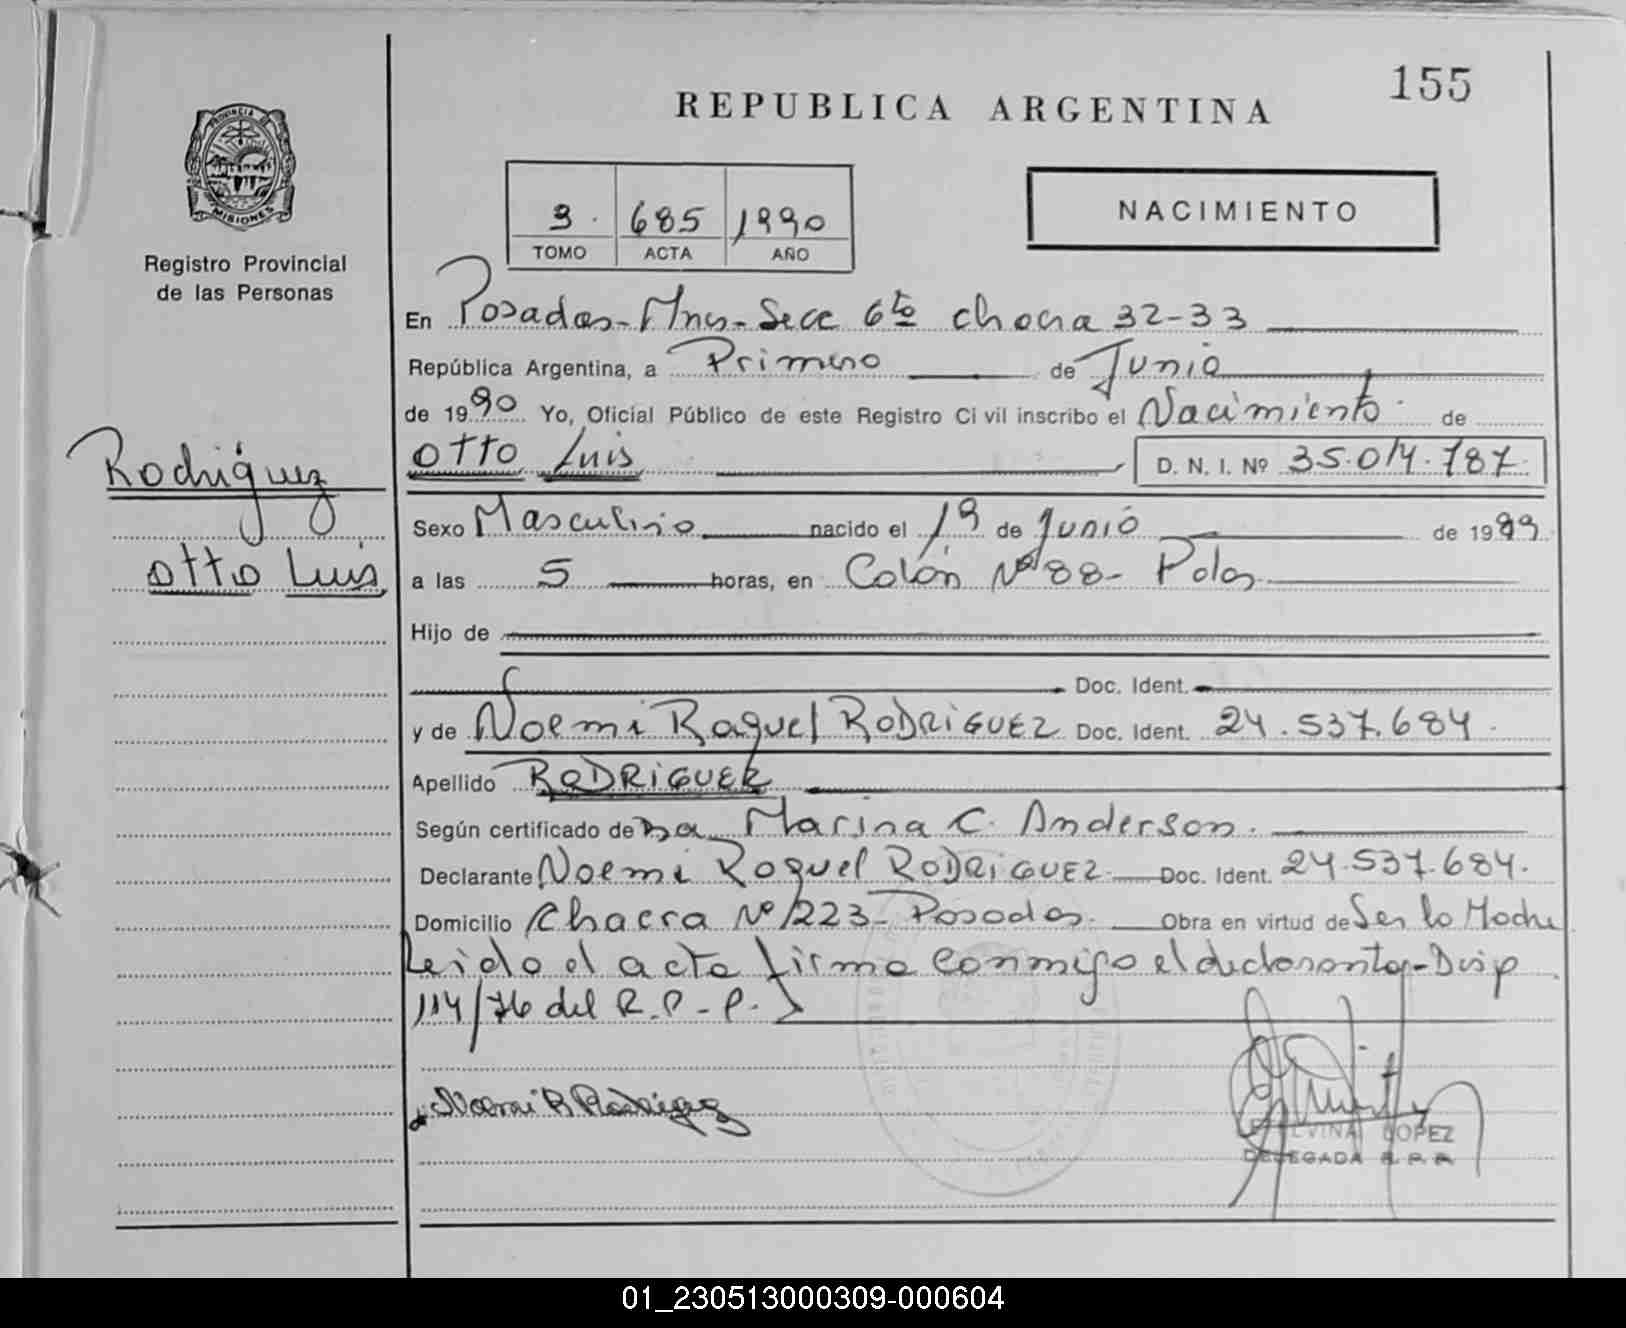 155
REPUBLICA ARGENTINA
PROVINCIA DE
MISIONES
Registro Provincial
de las Personas
3 685 1990
TOMO ACTA AÑO
NACIMIENTO
En Posadas - Mnes - Secc 6to chacra 32-33
República Argentina, a Primero de Junio
de 1990 Yo, Oficial Público de este Registro Civil inscribo el Nacimiento de
Rodriguez
Otto Luis
Otto Luis D. N. I. Nº 35.014.787
Sexo Masculino nacido el 19 de Junio de 1989
a las 5 horas, en Colón Nº 88 - Pdas
Hijo de
Doc. Ident.
y de Noemi Raquel RODRIGUEZ Doc. Ident. 24.537.684.
Apellido RODRIGUEZ
Según certificado de Marina C. Anderson.
Declarante Noemi Raquel RODRIGUEZ Doc. Ident. 24.537.684.
Domicilio Chacra Nº 223 - Posadas. Obra en virtud de Ser la Madre
Leido el acta firma conmigo el declarante - Disp
114/76 del R.P.P.
Noemi R Rodriguez
LOPEZ
DELEGADA R. P. P.
01_230513000309-000604